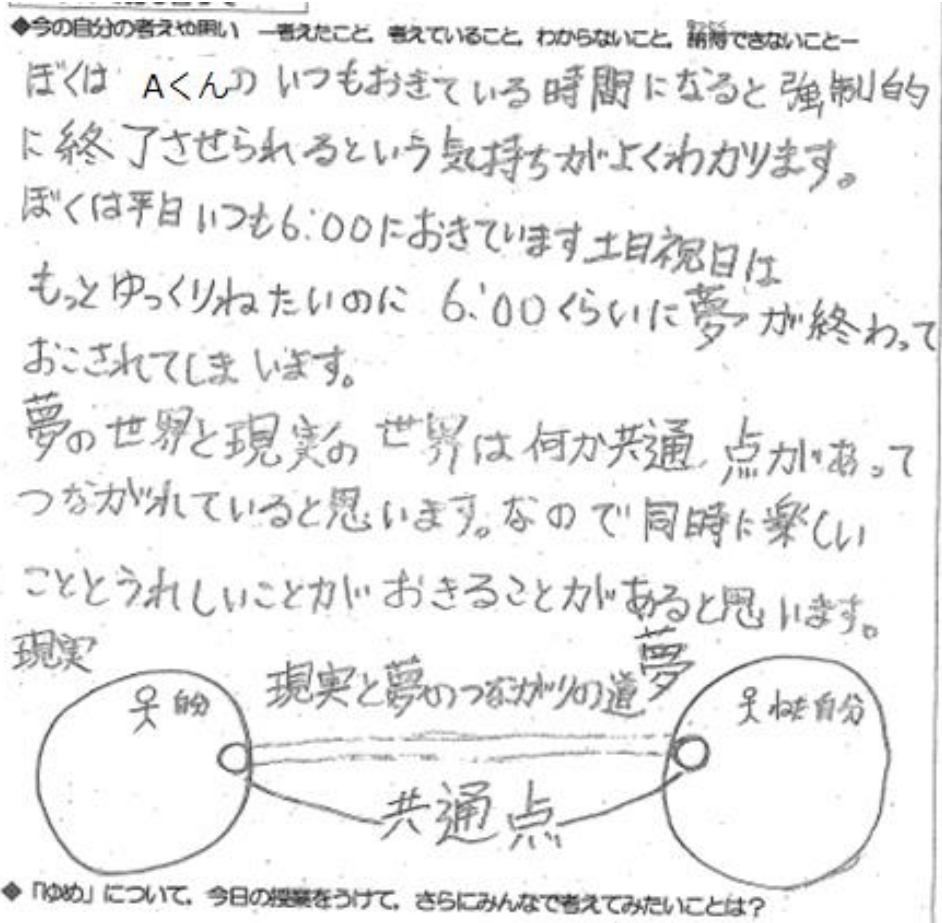 ◆今の自分の考えや思い ―考えたこと，考えていること，わからないこと，納得できないこと―
ぼくは Aくんの いつもおきている時間になると強制的
に終了させられるという気持ちがよくわかります。
ぼくは平日いつも6:00におきています土日祝日は
もっとゆっくりねたいのに 6:00くらいに夢が終わって
おこされてしまいます。
夢の世界と現実の世界は何か共通点があって
つながれていると思います。なので同時に楽しい
こととうれしいことがおきることがあると思います。
現実
夢
現実と夢のつながりの道
自分
ねた自分
共通点
◆「ゆめ」について，今日の授業をうけて，さらにみんなで考えてみたいことは？